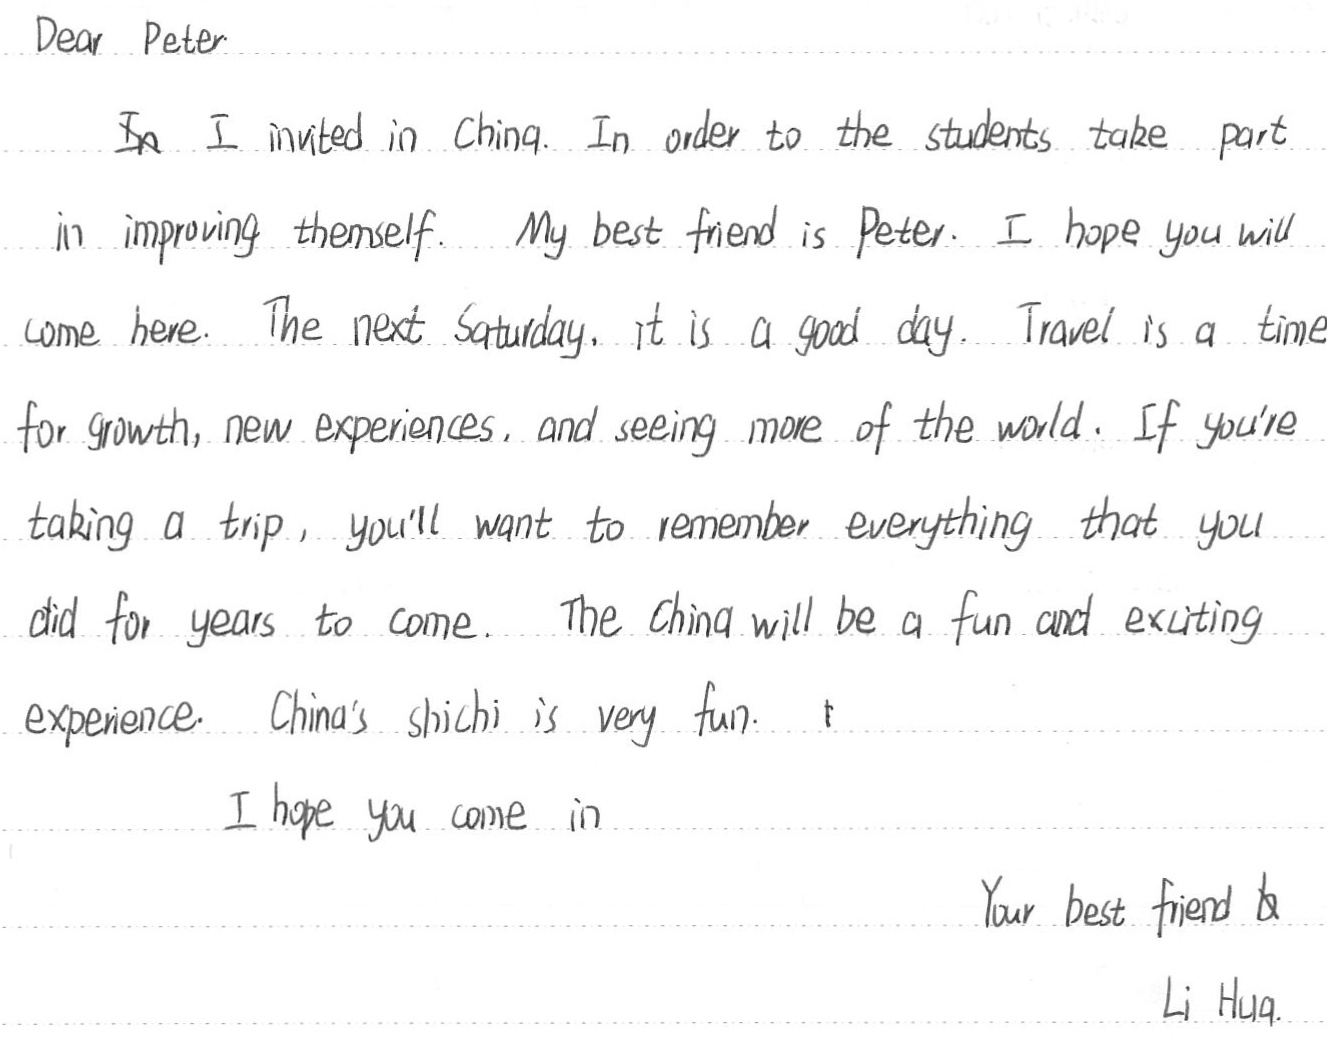 Dear Peter.
I invited in China. In order to the students take part
in improving themself. My best friend is Peter. I hope you will
come here. The next Saturday, it is a good day. Travel is a time
for growth, new experiences, and seeing more of the world. If you're
taking a trip, you'll want to remember everything that you
did for years to come. The China will be a fun and exciting
experience. China's shichi is very fun.
I hope you come in
Your best friend
Li Hua.